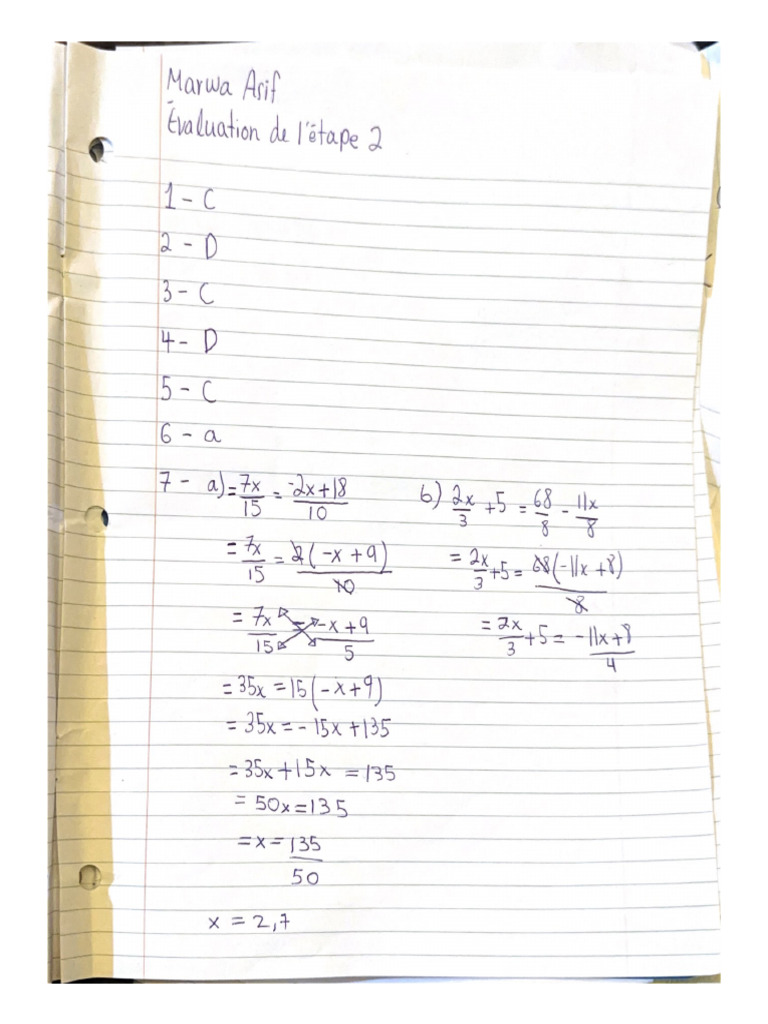 Marwa Asif
Évaluation de l'étape 2
1 - C
2 - D
3 - C
4 - D
5 - C
6 - a
7 - a) = 7x/15 = -2x+18/10
= 7x/15 = 2(-x+9)/10
= 7x/15 = -x+9/5
= 35x = 15(-x+9)
= 35x = -15x+135
= 35x+15x = 135
= 50x = 135
= x = 135/50
x = 2,7
b) 2x/3 + 5 = 68/8 - 11x/8
= 2x/3 + 5 = 68(-11x+8)/8
= 2x/3 + 5 = -11x+8/4